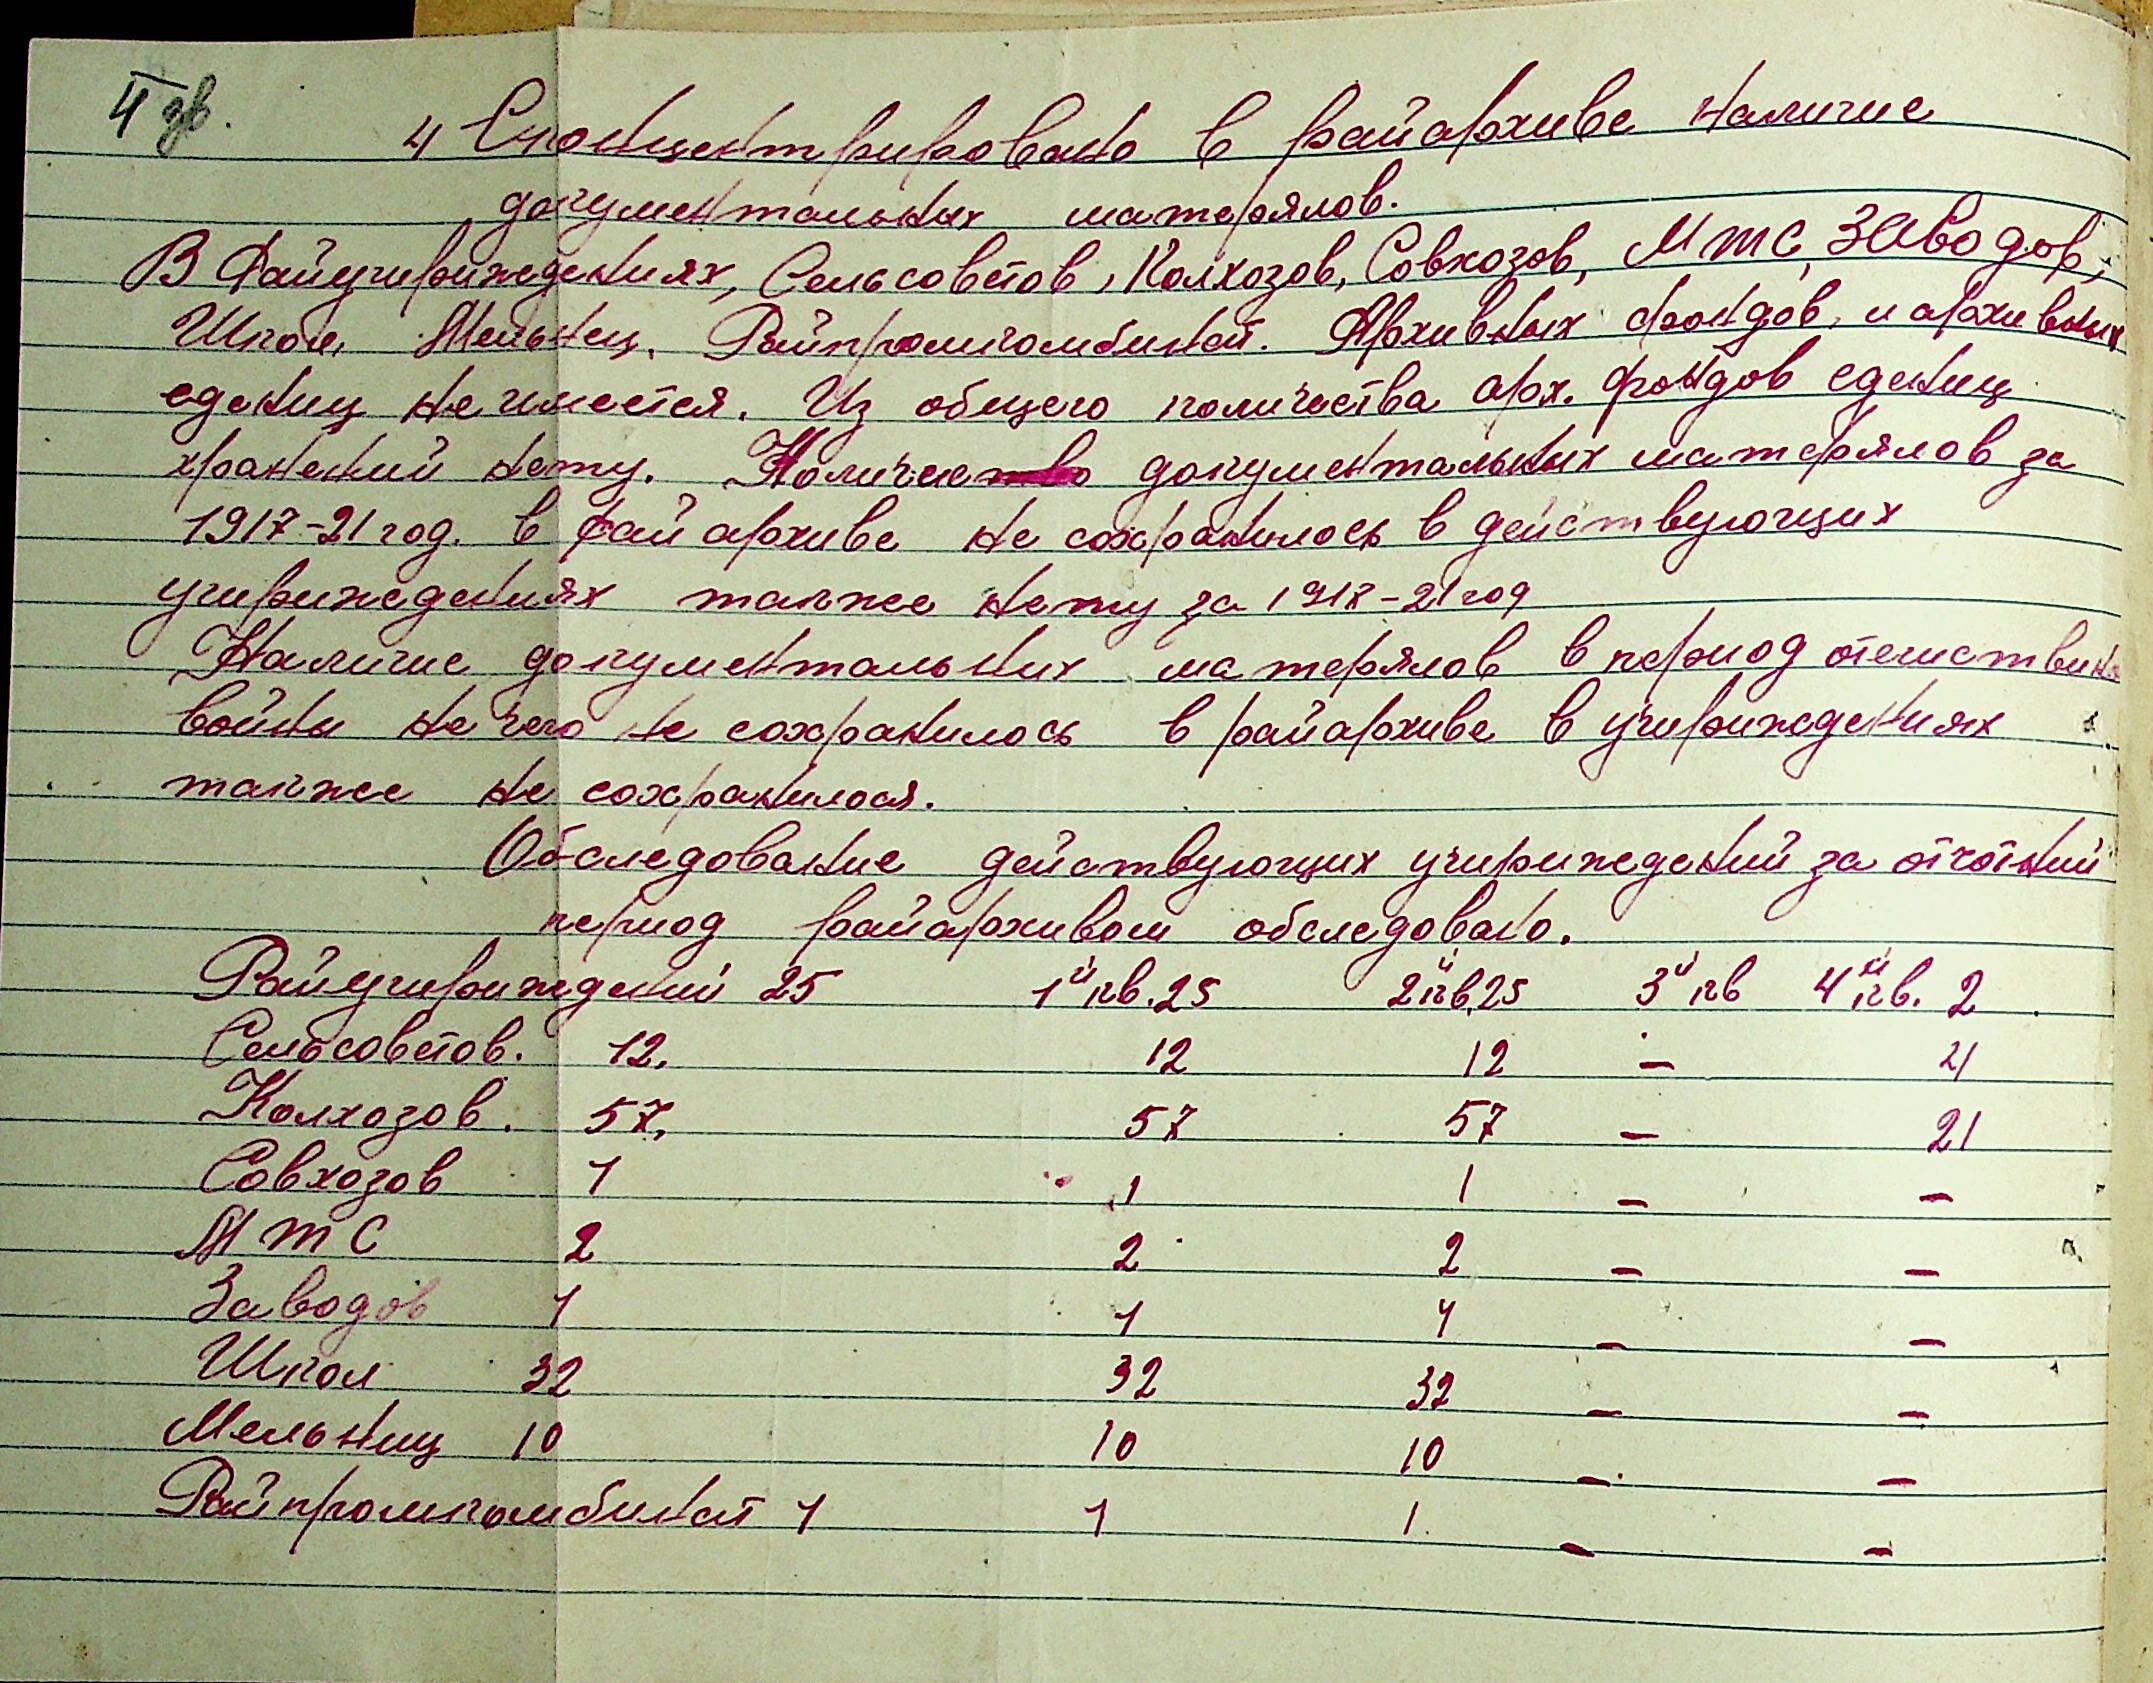 4 зв.
4 Сконцентрировано в райархиве наличие
документальных матерялов.
В Райучириждениях, Сельсоветов, Колхозов, Совхозов, МТС, Заводор,
Школ, Мельнец, Райпромкомбинат. Архивных фондов, и архивных
едениц не имеется. Из общего количества арх. фондов едениц
хранений нету. Количество документальных матерялов за
1917-21 год. в райархиве не сохранилось в действующих
учириждениях также нету за 1917-21 год
Наличие документальних матерялов в период отечиствин
войны не чего не сохранилось в райархиве в учириждениях
также не сохранилося.
Обследование действующих учириждений за отчотний
период райархивом обследовано.
Райучириждений 25 1й кв. 25 2й кв. 25 3й кв 4й кв. 2
Сельсоветов. 12. 12 12 – 4
Колхозов. 57. 57 57 – 21
Совхозов 1 1 1 – –
МТС 2 2 2 – –
Заводов 1 1 1 – –
Школ 32 32 32 – –
Мельниц 10 10 10 – –
Райпромкомбинат 1 1 1 – –